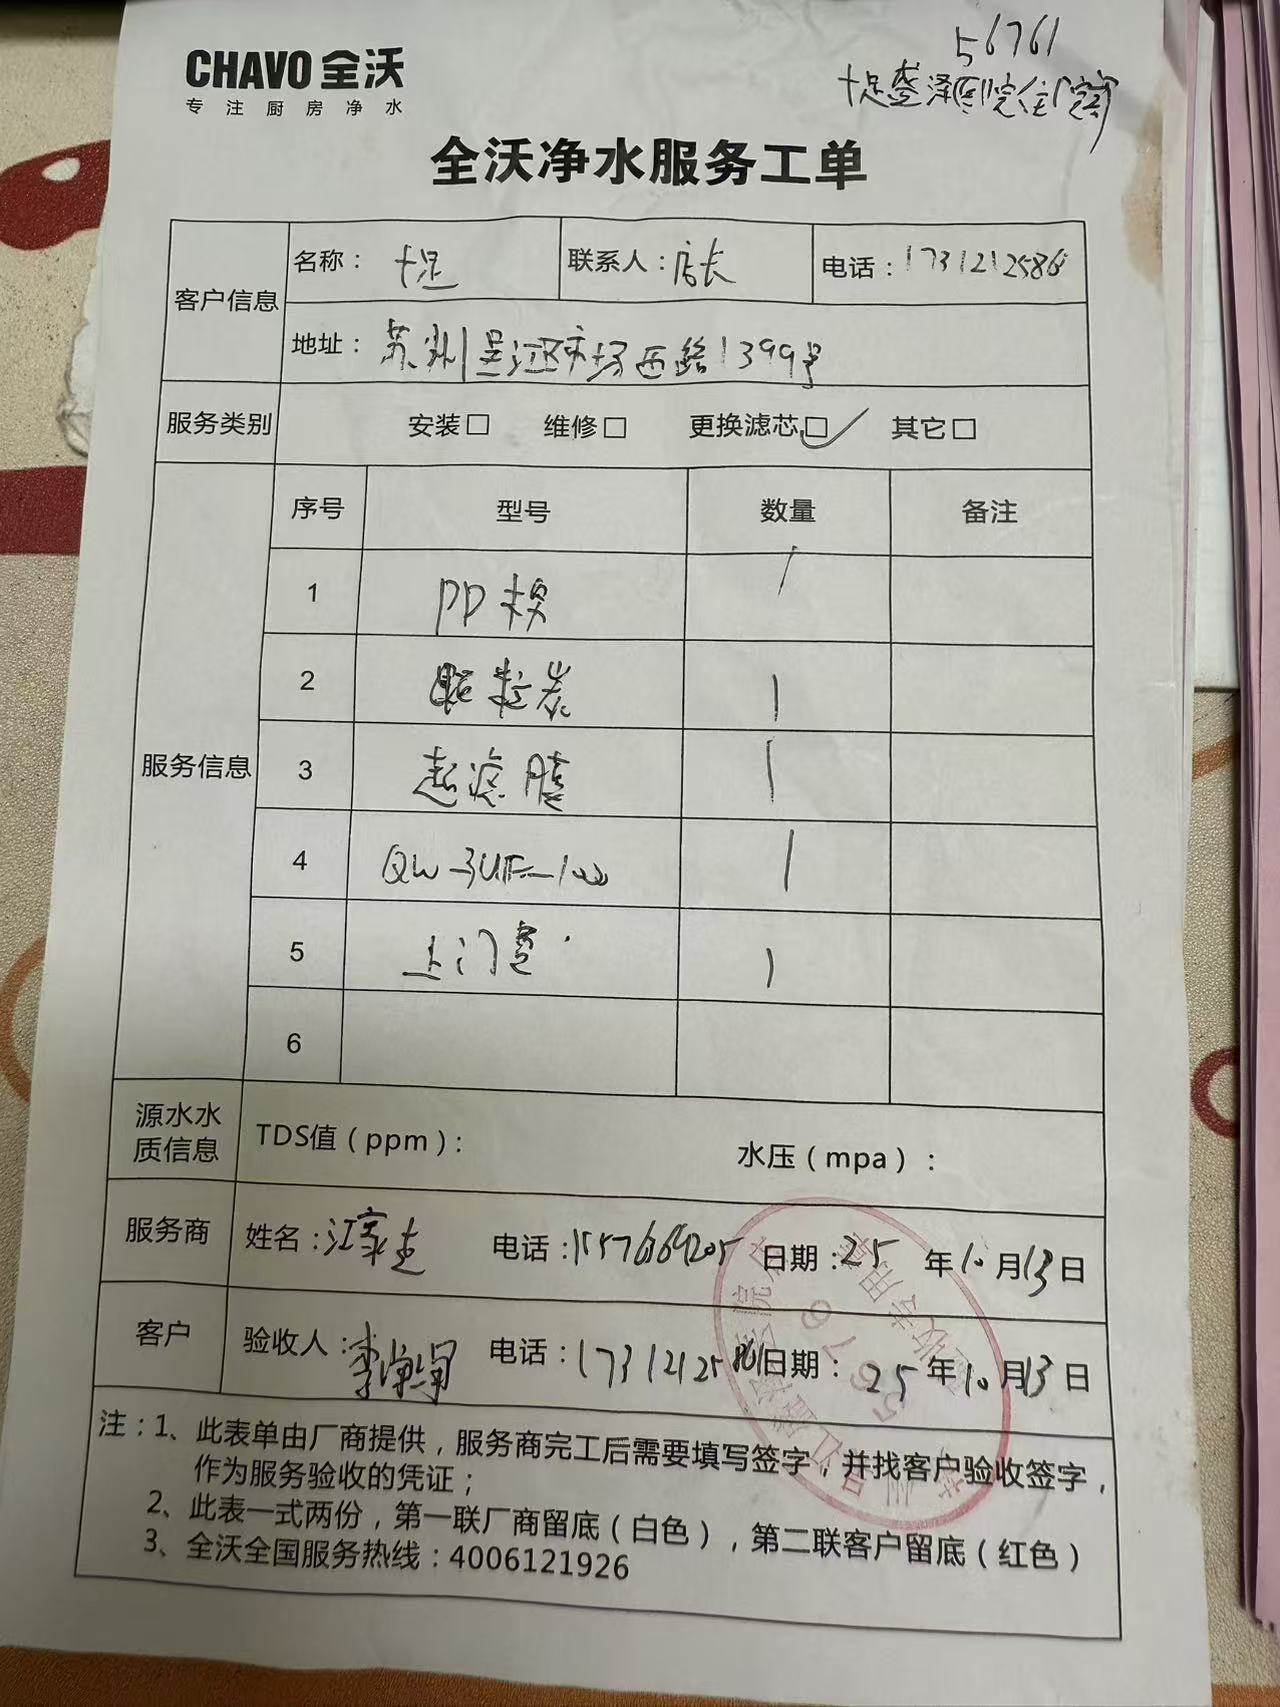 56761
十足盛泽医院住院部
CHAVO 全沃
专注厨房净水
全沃净水服务工单
客户信息 名称：十足 联系人：店长 电话：
地址：苏州吴江区市场西路1399号
服务类别 安装□ 维修□ 更换滤芯□✓ 其它□
服务信息 序号 型号 数量 备注
1 PP棉 1
2 颗粒炭 1
3 超滤膜 1
4 QW-3UF-100 1
5 上门费 1
6
源水水质信息 TDS值（ppm）： 水压（mpa）：
服务商 姓名：江 电话： 日期：25年10月13日
客户 验收人：李 电话： 日期：25年10月13日
注：1、此表单由厂商提供，服务商完工后需要填写签字，并找客户验收签字，
作为服务验收的凭证；
2、此表一式两份，第一联厂商留底（白色），第二联客户留底（红色）
3、全沃全国服务热线：4006121926